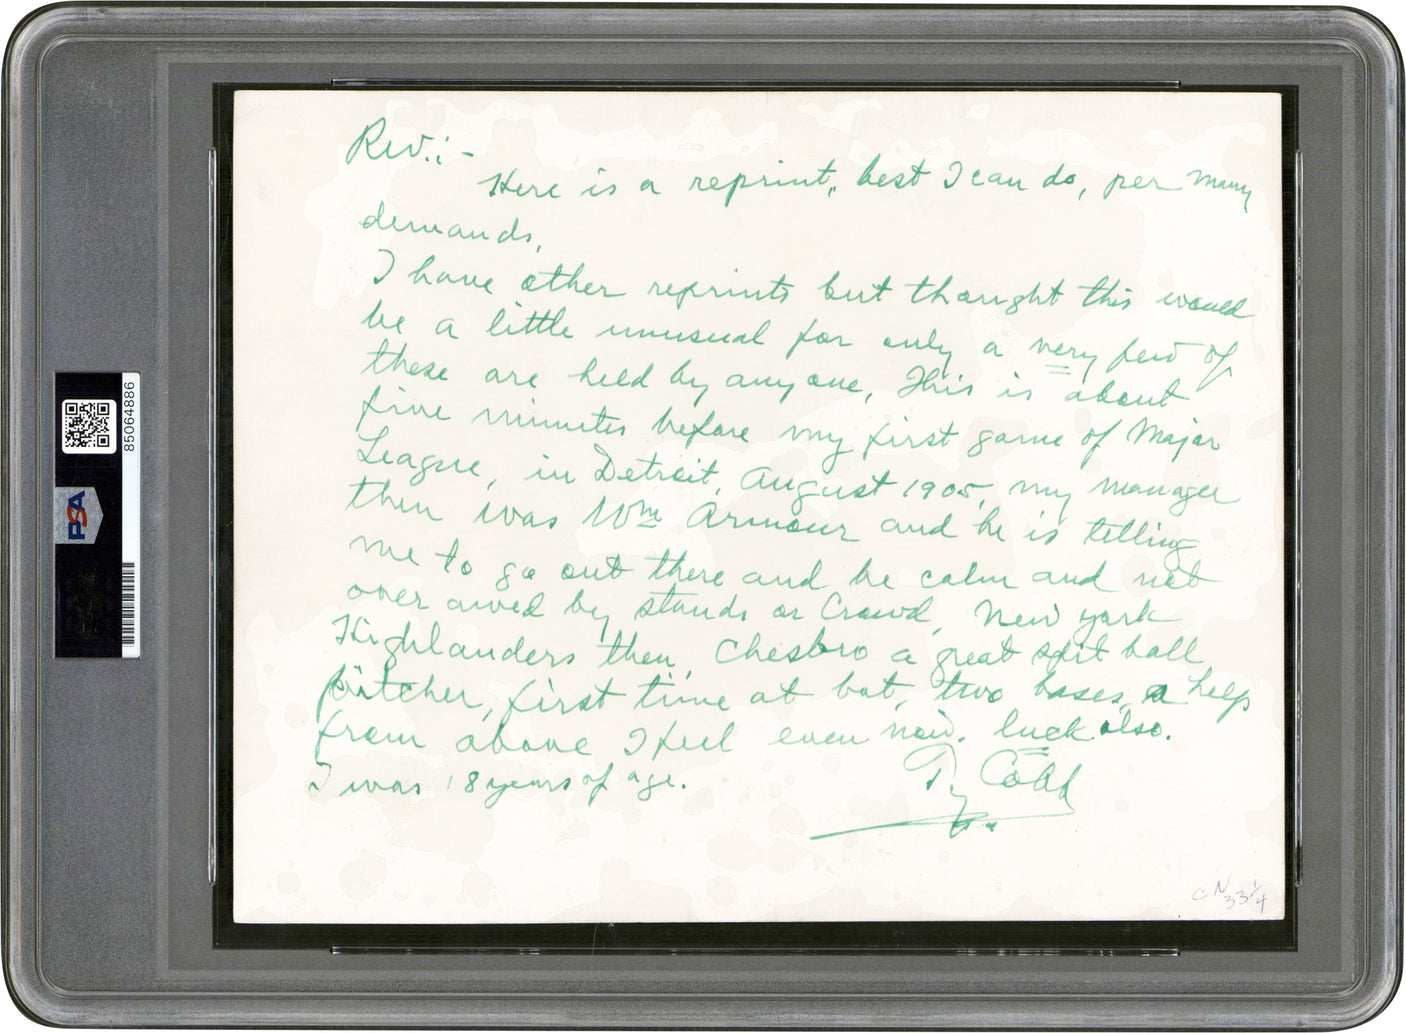 Rev.:-
Here is a reprint, best I can do, per many
demands,
I have other reprints but thought this would
be a little unusual for only a very few of
these are held by any one, This is about
five minutes before my first game of Major
League, in Detroit, August 1905, my manager
then was Wm Armour and he is telling
me to go out there and be calm and not
over awed by stands or Crowd, New York
Highlanders then, Chesbro a great spit ball
pitcher, first time at bat, two bases, a help
from above I feel even now. luck also.
I was 18 years of age.
Ty Cobb
CN 33 1/4
PSA
85064886